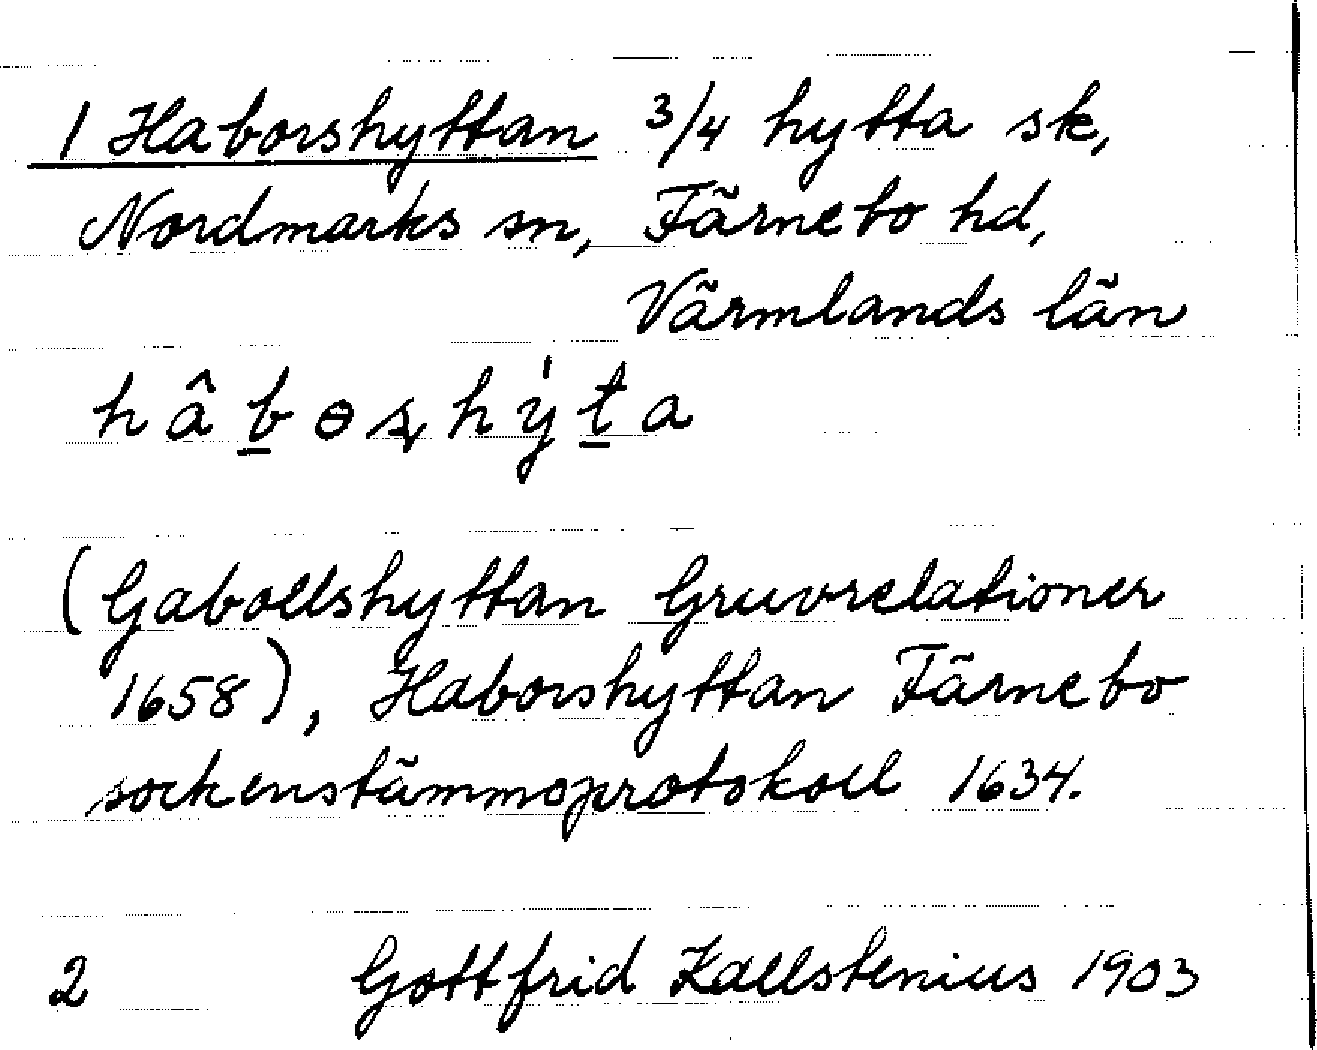 1 Haborshyttan 3/4 hytta sk,
Nordmarks sn, Färnebo hd,
Värmlands län
hâb̲ɵʂhy̍t̲a
(Gabollshyttan Gruvrelationer
1658), Haborshyttan Färnebo
sockenstämmoprotokoll 1634.
2 Gottfrid Kallstenius 1903